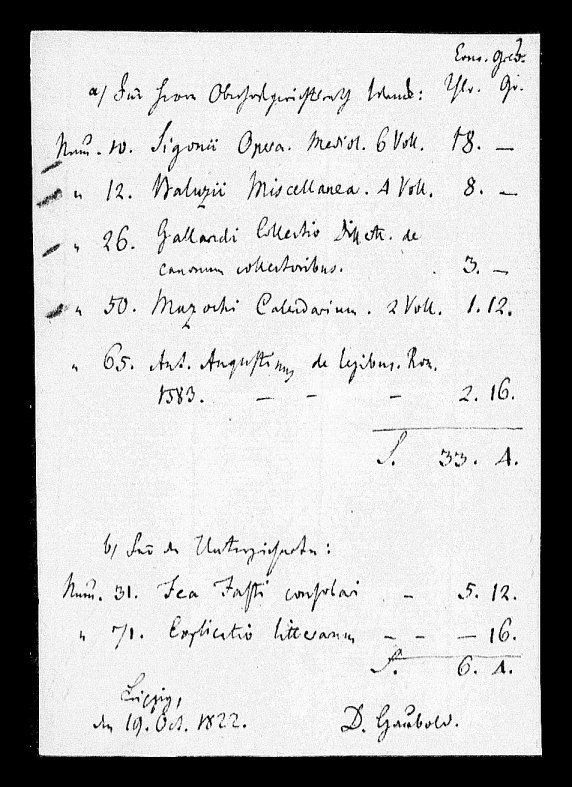 Conv. Geld.
a) Für Herrn Oberhofgerichtsrath Blümner: Thlr. Gr.
Num. 10. Sigonii Opera. Mediol. 6 Voll. 18. —
„ 12. Baluzii Miscellanea. 4 Voll. 8. —
„ 26. Gallandi Collectio Diss. de
canonum collectionibus. 3. —
„ 50. Mazochi Calendarium. 2 Voll. 1. 12.
„ 65. Ant. Augustinus de legibus. Rom.
1583. — — — 2. 16.
S. 33. 4.
b) Für den Unterzeichneten:
Num. 31. Fea Fasti consolari — 5. 12.
„ 71. Explicatio litterarum — — — 16.
S. 6. 4.
Leipzig,
den 19. Oct. 1822. D. Haubold.